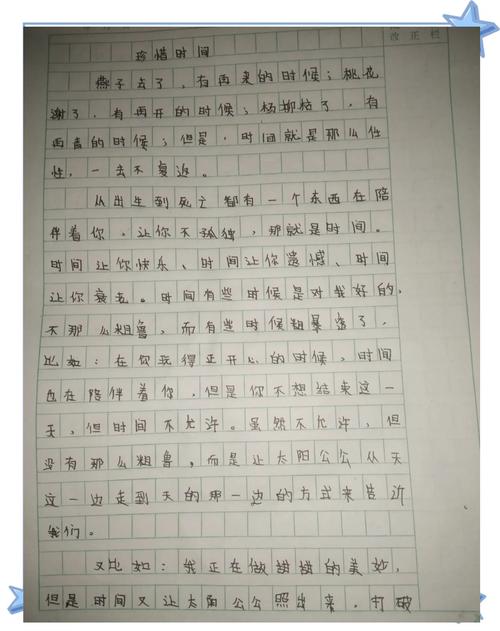 改正栏
珍惜时间
燕子去了，有再来的时候；桃花
谢了，有再开的时候；杨柳枯了，有
再青的时候；但是，时间就是那么任
性，一去不复返。
从出生到死亡都有一个东西在陪
伴着你，让你不孤独，那就是时间。
时间让你快乐、时间让你遗憾、时间
让你衰老。时间有些时候是对我好的，
不那么粗鲁，而有些时候粗暴透了，
比如：在你我得正开心的时候，时间
也在陪伴着你，但是你不想结束这一
天，但时间不允许。虽然不允许，但
没有那么粗鲁，而是让太阳公公从天
这一边走到天的那一边的方式来告诉
我们。
又比如：我正在做甜甜的美妙，
但是时间又让太阳公公照出来，打破